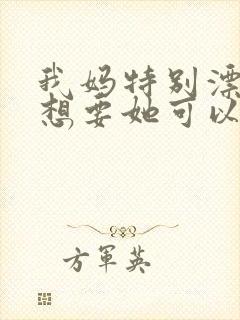 我妈特别漂
想要她可以
方军英